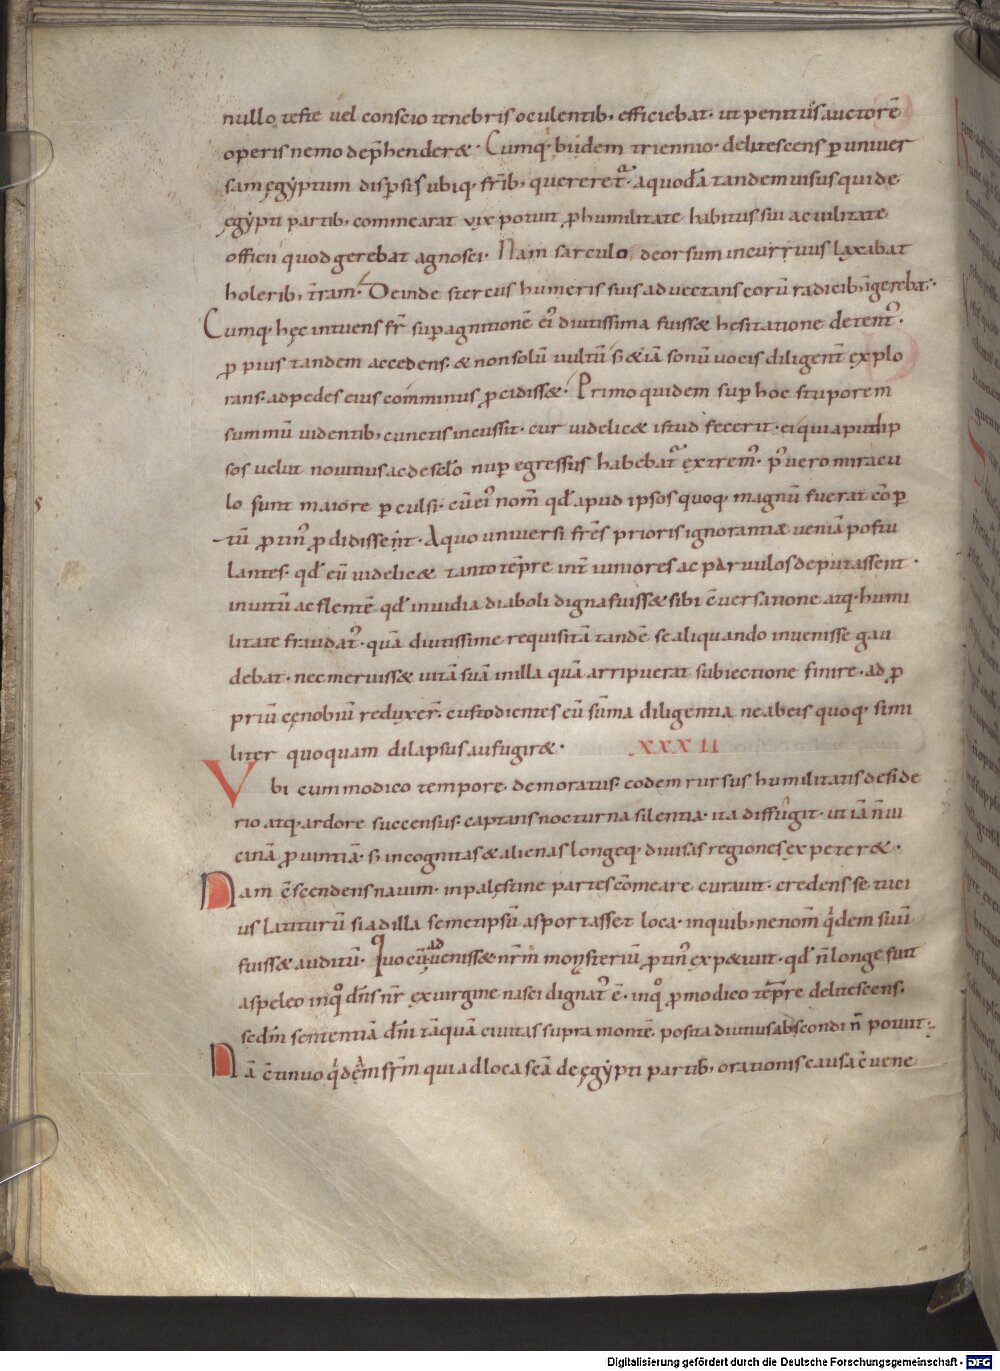 nullo teste uel conscio tenebris oculentib; efficiebat· ut penitus auctorē
operis nemo dep̄hender&· Cumq; biidem triennio· delitescens ꝑ uniuer
sam ęgẏptum disꝑsis ubiq; fr̄ib; quereret᷑· a quodā tandem uisus qui de
ęgẏpti partib; commearat vix potuit ꝓ humilitate habitus sui ac uilitate
officii quod gerebat agnosci· Nam sarculo deorsum incurruus laxabat
holerib; t̄ram· Deinde stercus humeris suis aduectans eorū radicib; īgerebat·
Cumq; hęc intuens fr̄ suꝑ agnitionē ei᷒ diutissima fuiss& hesitatione detent᷒·
ꝓpius tandem accedens· & non solū uultū s; & iā sonū uocis diligent̄ explo
rans· ad pedes eius comminus ꝓcidiss&· Primo quidem suꝑ hoc stuporem
summū uidentib; cunctis incussit· cur uidelic& istud fecerit· ei qui apud ip
sos uelut nouitius ac de sc̄lo nuꝑ egressus habebat᷑ extrem᷒· p᷒ uero miracu
lo sunt maiore ꝑculsi· cū ei᷒ nom̄ qd̄ apud ipsos quoq; magnū fuerat cōꝑ
tū ꝓtin᷒ ꝓdidissent· A quo uniuersi fr̄es prioris ignorantiæ ueniā postu
lantes· qd̄ eū uidelic& tanto tēpre int̄ iuniores ac paruulos deputassent·
inuitū ac flentē qd̄ inuidia diaboli digna fuiss& sibi c̄uersatione atq; humi
litate fraudat᷒· quā diutissime requisitā tandē se aliquando inuenisse gau
debat· nec meruiss& uitā suā in illa quā arripuerat subiectione finire· ad ꝓ
priū cęnobiū reduxer̄· custodientes eū sūma diligentia ne ab eis quoq; simi
liter quoquam dilapsus aufugir&· XXXII
Vbi cum modico tempore· demoratus· eodem rursus humilitatis deside
rio atq; ardore succensus· captans nocturna silentia· ita diffugit· ut iā n̄ ui
cinā ꝓuintiā· s; incognitas & alienas longeq; diuisas regiones expeter&·
Nam c̄scendens nauim· in palęstine partes cōmeare curauit· credens se tuci
us latiturū si ad illa semetipsū asportasset loca· in quib; ne nom̄ q̇dem suū
fuiss& auditū· Quo cū adueniss& nr̄m monẏsteriū ꝓtin᷒ exp&iuit· qd̄ n̄ longe fuit
a speleo in q᷒ dn̄s nr̄ ex uirgine nasci dignat᷒ ē· in q᷒ ꝓ modico tēpre delitescens·
sedm̄ sententiā dn̄i tāquā ciuitas supra montē posita diutius abscondi n̄ potuit·
Nā c̄tinuo q̇dem fr̄m qui ad loca sc̄a de ęgẏpti partib; orationis causa c̄uene